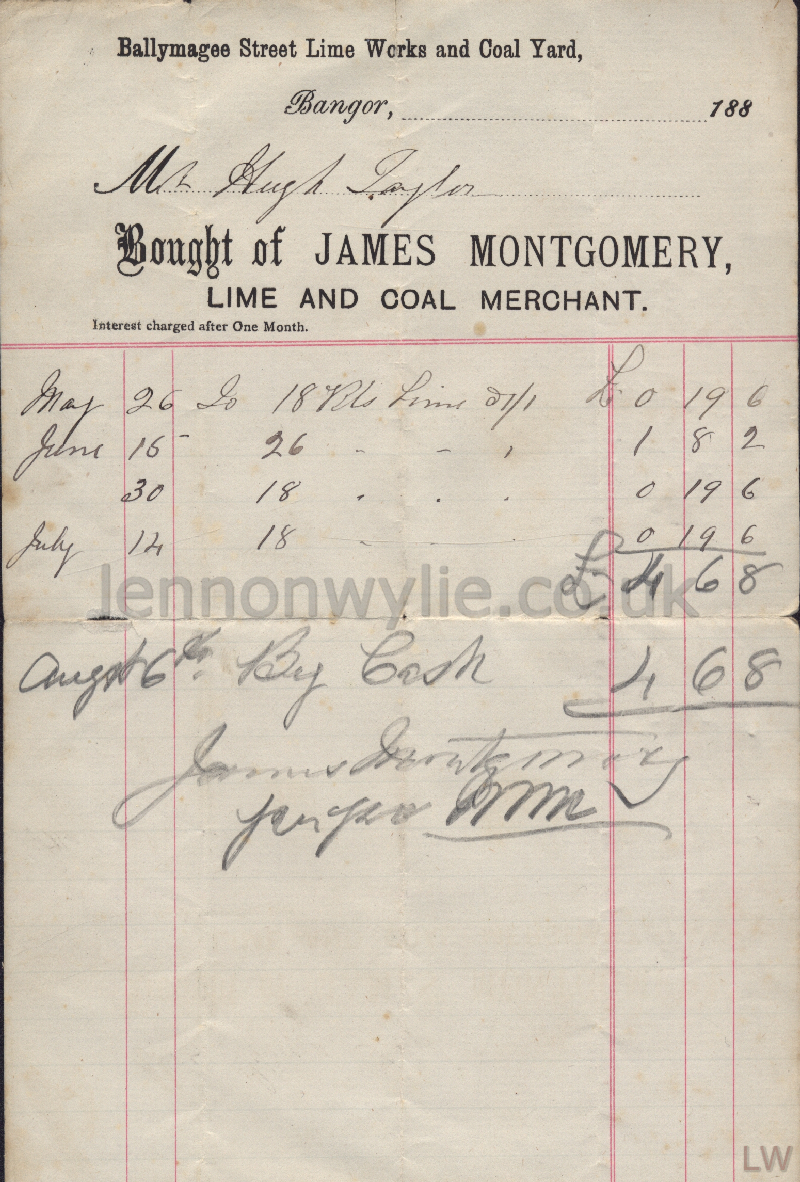 Ballymagee Street Lime Works and Coal Yard,
Bangor, 188
Mr Hugh Taylor
Bought of JAMES MONTGOMERY,
LIME AND COAL MERCHANT.
Interest charged after One Month.
May 26 To 18 Lime 1/1 £ 0 19 6
June 15 26 1 8 2
30 18 0 19 6
July 14 18 0 19 6
£ 4 6 8
lennonwylie.co.uk
Augst 6th By Cash 4 6 8
James Montgomery
LW